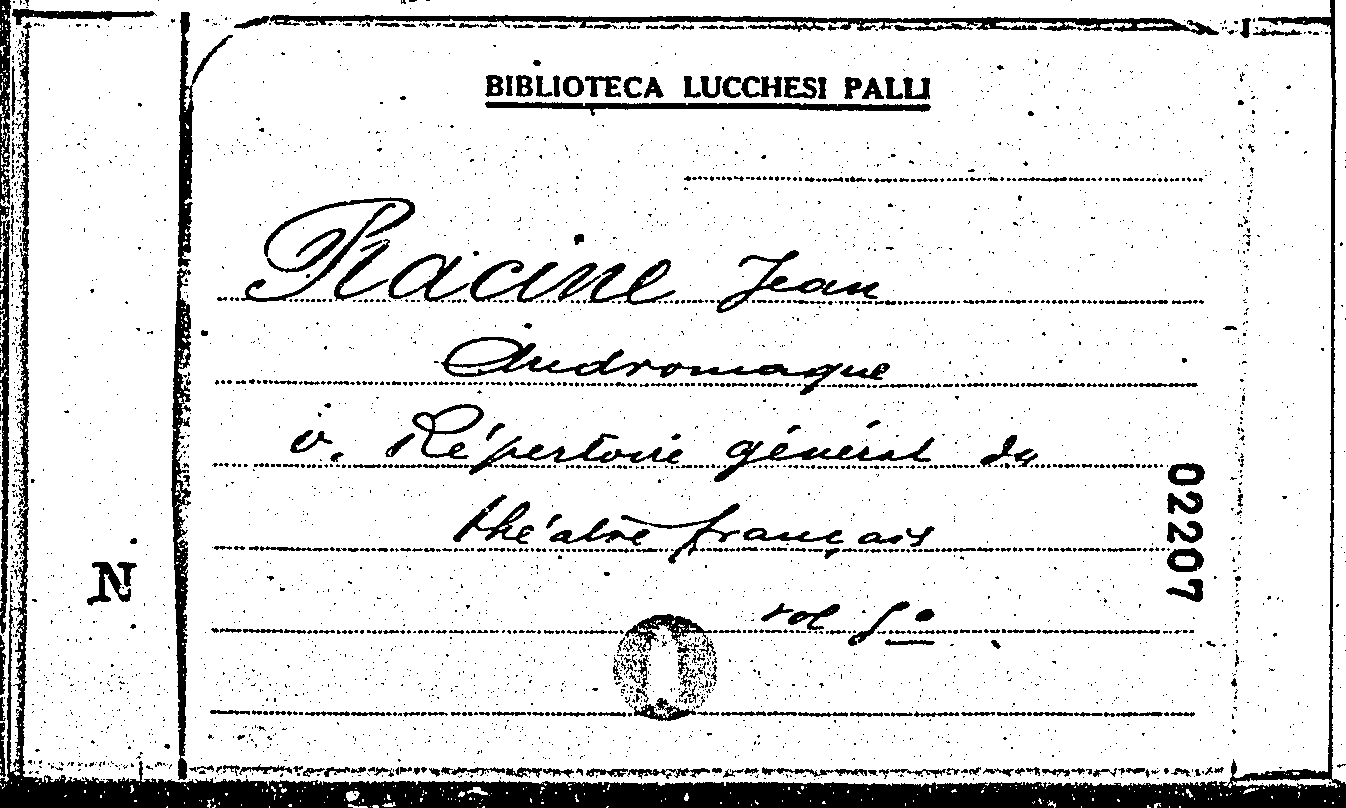 BIBLIOTECA LUCCHESI PALLI
Racine Jean
Andromaque
v. Répertoire général du
théatre français
vol
02207
N